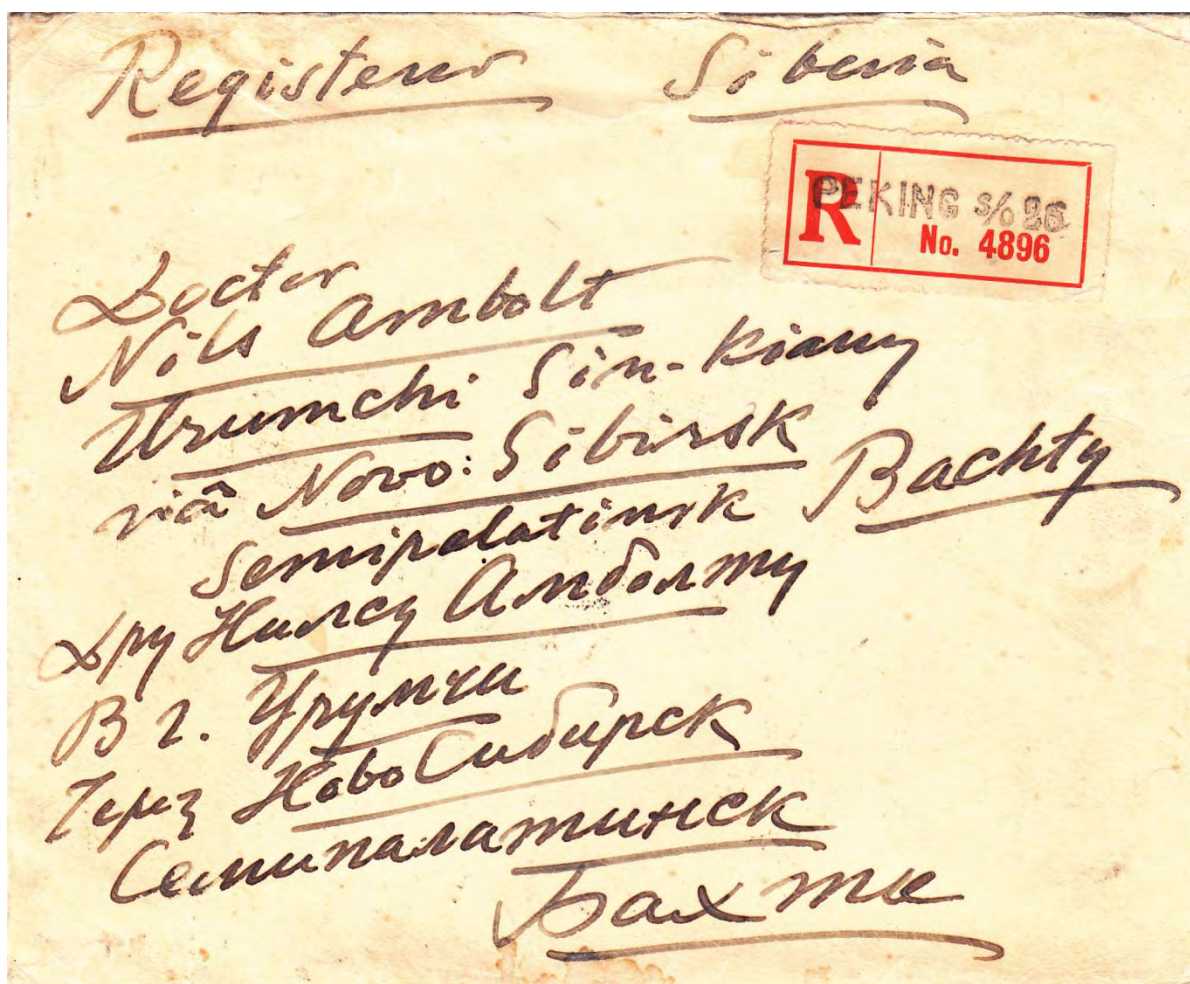 Registered Siberia
R PEKING S/O 26
No. 4896
Doctor
Nils Ambolt
Urumchi Sin-Kiang
viâ Novo: Sibirsk
Semipalatinsk Bachty
Дру Нилсу Амболту
В г. Урумчи
Через НовоСибирск
Семипалатинск
Бахты